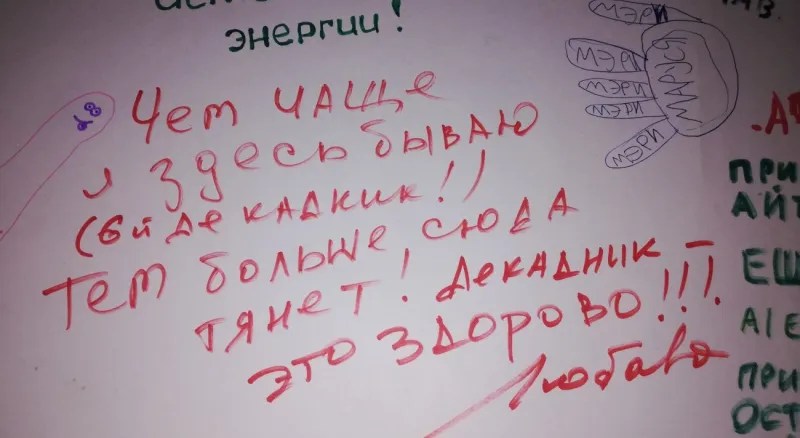 энергии!
Чем чаще
я здесь бываю
(6й декадник!)
тем больше сюда
тянет! Декадник –
это здорово!!!
Любава
МЭРИ
МЭРИ
МЭРИ
МЭРИ
МЭРИ
МАРУСЯ
ПРИ
АЙТ
ЕЩ
AIE
ПРИ
ОСТ